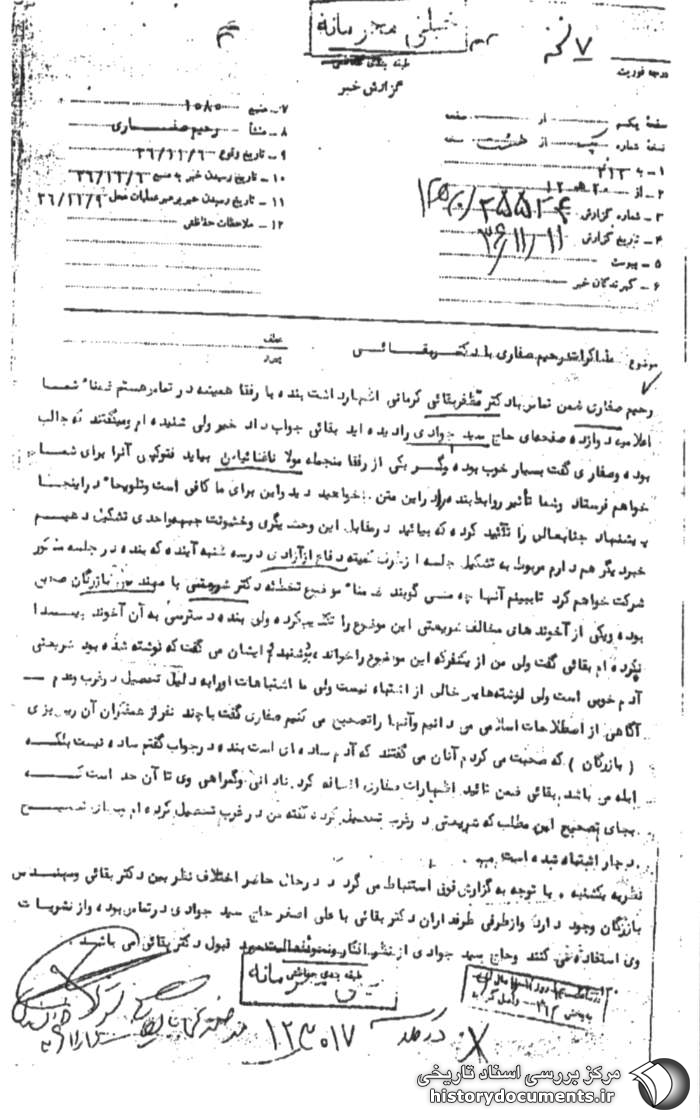 خیلی محرمانه
طبقه بندی حفاظتی
گزارش خبر
درجه فوریت
۷ نسخه
صفحه یکم از صفحه
نسخه شماره از نسخه
۱ - به ۳۱۲
۲ - از
۳ - شماره گزارش
۴ - تاریخ گزارش ۳۶/۱۱/۱۱
۵ - پیوست
۶ - گیرندگان خبر
۷ - منبع ۱۰۸۰
۸ - منشأ رحیم صفاری
۹ - تاریخ وقوع ۳۶/۱۱/۶
۱۰ - تاریخ رسیدن خبر به منبع ۳۶/۱۱/۶
۱۱ - تاریخ رسیدن خبر برهبر عملیات محل ۳۶/۱۱/۹
۱۲ - ملاحظات حفاظتی
موضوع مذاکرات رحیم صفاری با دکتر بقائی
رحیم صفاری ضمن تماس با دکتر مظفر بقائی کرمانی اظهار داشت بنده با رفقا همیشه در تماس هستم ضمناً شما
اعلامیه دوازده صفحه‌ای حاج سید جوادی را دیده اید بقائی جواب داد خیر ولی شنیده ام و میگفتند که جالب
بوده و صفاری گفت بسیار خوب بوده و گر یکی از رفقا منجمله مولا ناغذائیان بیاید فتوکپی آنرا برای شما
خواهم فرستاد و شما تأثیر روابط بنده را در این متن خواهید دید و این برای ما کافی است و تلویحاً در اینجا
پیشنهاد جنابعالی را تأئید کرده که بیائید در مقابل این وحشیگری و خشونت جبهه واحدی تشکیل دهیم
خبر دیگر هم دارم مربوط به تشکیل جلسه از طرف کمیته دفاع از آزادی در سه شنبه آینده که بنده در جلسه مذکور
شرکت خواهم کرد تا ببینم آنها چه می گویند ضمناً موضوع تخطئه دکتر شریعتی با مهندس بازرگان صحبت
بوده و یکی از آخوند های مخالف شریعتی این موضوع را تکذیب کرده ولی بنده دسترسی به آن آخوند پیدا
نکرده ام بقائی گفت ولی من از یکنفر که این موضوع را خوانده بشنیدم ایشان می گفت که نوشته شده بود شریعتی
آدم خوبی است ولی نوشته‌هایش خالی از اشتباه نیست ولی ما اشتباهات او را به دلیل تحصیل در غرب و عدم
آگاهی از اصطلاحات اسلامی می دانیم و آنها را تصحیح می کنیم صفاری گفت با چند نفر از همفکران آن
( بازرگان ) که صحبت می کردم آنان می گفتند که آدم ساده ای است بنده در جواب گفتم ساده نیست بلکه
ابله می باشد بقائی ضمن تائید اظهارات صفاری اضافه کرد نادانی و گمراهی وی تا آن حد است که
بجای تصحیح این مطلب که شریعتی در غرب تحصیل کرده گفته من در غرب تحصیل کرده ام
دچار اشتباه شده است
نظریه یکشنبه . با توجه به گزارش فوق استنباط می گردد در حال حاضر اختلاف نظر بین دکتر بقائی و مهندس
بازرگان وجود دارد و از طرفی طرفداران دکتر بقائی با علی اصغر حاج سید جوادی در تماس بوده و از نشریات
وی استفاده می کنند و حاج سید جوادی از نظر افکار و نحوه فعالیت مورد قبول دکتر بقائی می باشد .
طبقه بندی حفاظتی
خیلی محرمانه
۱۲۳۰۱۷
مرکز بررسی اسناد تاریخی
historydocuments.ir